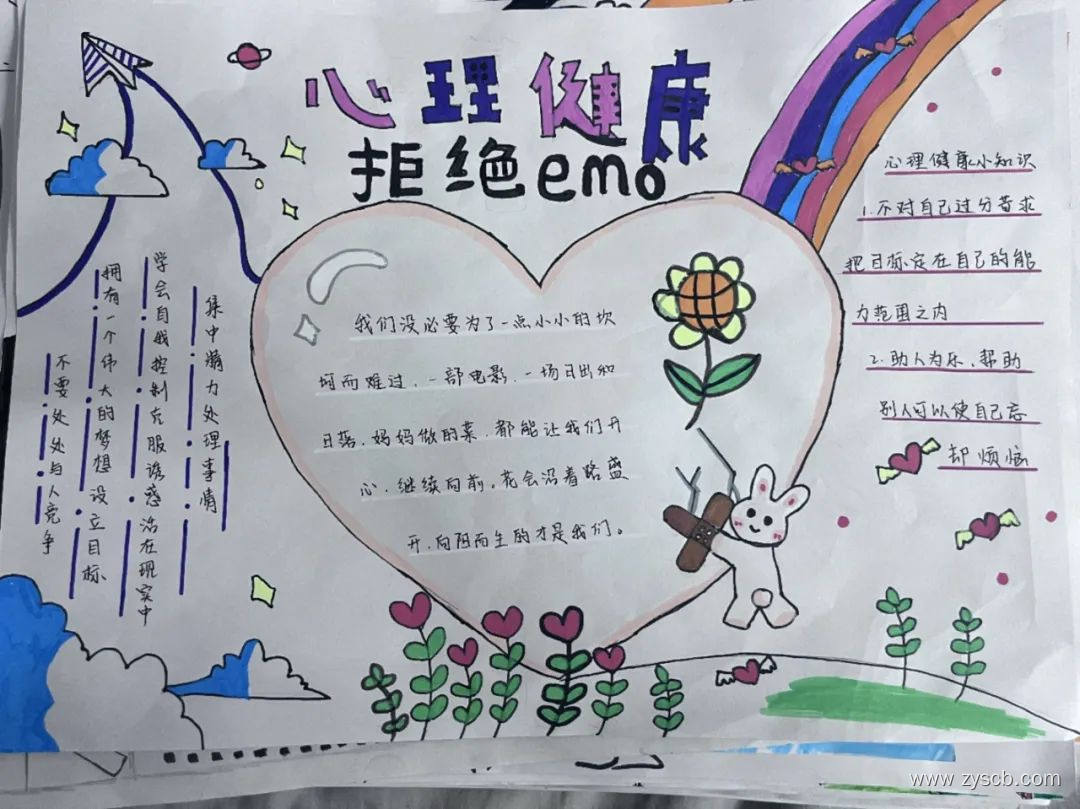 心理健康
拒绝emo
集中精力处理事情
学会自我控制克服诱惑活在现实中
拥有一个伟大的梦想设立目标
不要处处与人竞争
我们没必要为了一点小小的坎
坷而难过，一部电影，一场日出和
日落，妈妈做的菜，都能让我们开
心，继续向前，花会沿着路盛
开，向阳而生的才是我们。
心理健康小知识
1.不对自己过分苛求
把目标定在自己的能
力范围之内
2.助人为乐、帮助
别人可以使自己忘
却烦恼
www.zyscb.com